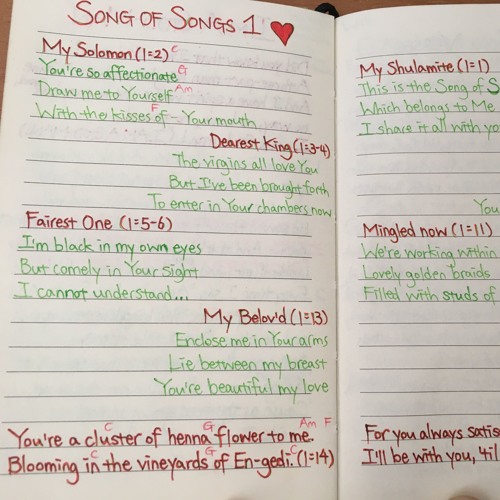 SONG OF SONGS 1
My Solomon (1=2) C
You're so affectionate G
Draw me to Yourself Am
With the kisses of - Your mouth F
Dearest King (1=3-4)
The virgins all love You
But I've been brought forth
To enter in Your chambers now
Fairest One (1=5-6)
I'm black in my own eyes
But comely in Your sight
I cannot understand...
My Belov'd (1=13)
Enclose me in Your arms
Lie between my breast
You're beautiful my love
C G Am F
You're a cluster of henna flower to me.
C G C
Blooming in the vineyards of En-gedi. (1=14)
My Shulamite (1=1)
This is the Song of S
Which belongs to Me
I share it all with yo
You
Mingled now (1=11)
We're working within
Lovely golden braids
Filled with studs of
For you always satis
I'll be with you, 'til